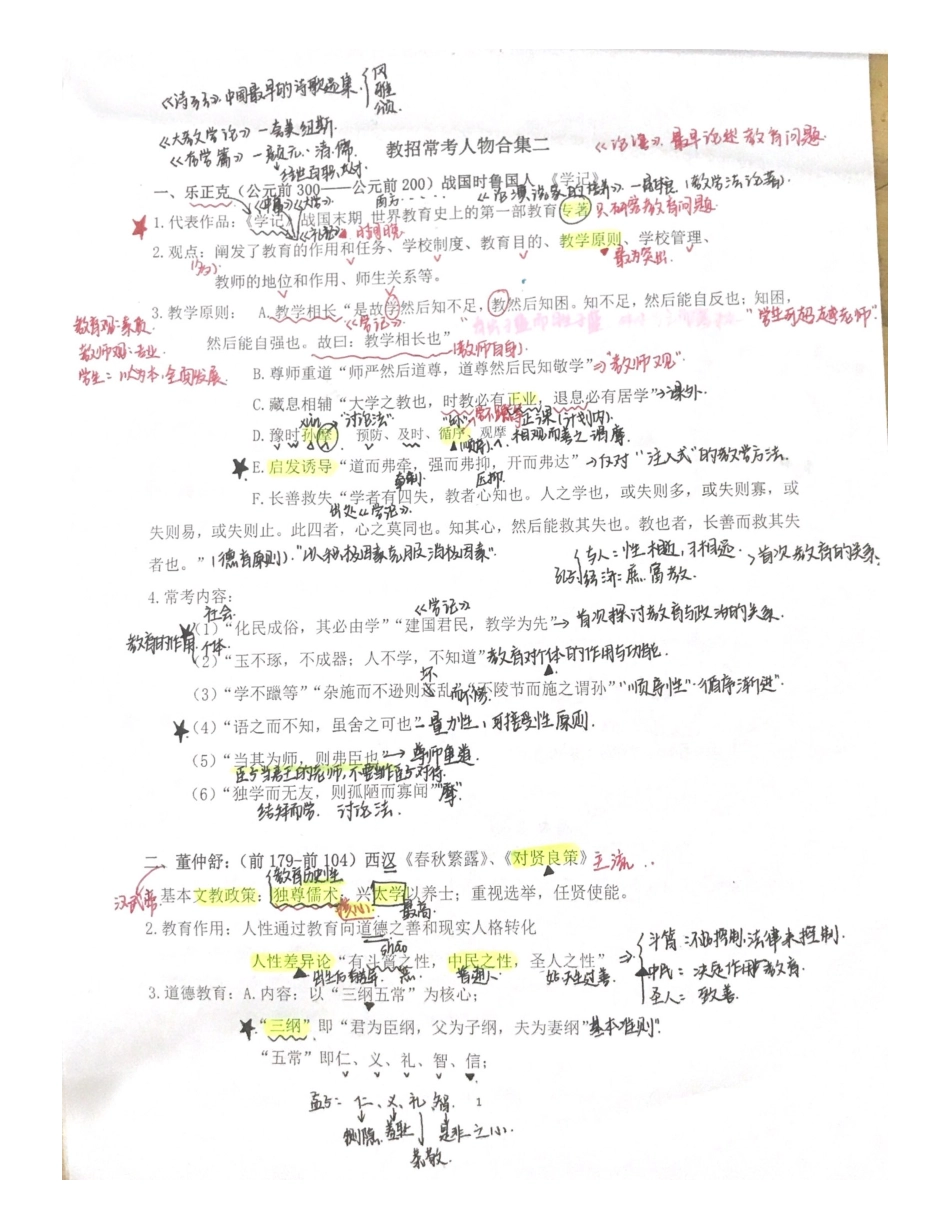 《诗经》.中国最早的诗歌选集.
风
雅
颂.
《大教学论》—夸美纽斯.
《存学篇》—颜元、清,儒.
教招常考人物合集二
《论语》.最早论述教育问题.
一、乐正克(公元前 300——公元前 200)战国时鲁国人,《学记》
《中庸》《大学》
1.代表作品:《学记》战国末期 世界教育史上的第一部教育专著 只研究教育问题.
《礼记》
2.观点:阐发了教育的作用和任务、学校制度、教育目的、教学原则、学校管理、
最为突出.
教师的地位和作用、师生关系等。
3.教学原则: A.教学相长“是故学然后知不足,教然后知困。知不足,然后能自反也;知困,
《学记》.
"学生可超越老师".
然后能自强也。故曰:教学相长也” (教师自身).
教师观:专业.
学生:以人为本,全面发展.
B.尊师重道“师严然后道尊,道尊然后民知敬学” "教师观"
C.藏息相辅“大学之教也,时教必有正业,退息必有居学”→课外.
xùn "讨论法" 正课(计划内).
D.豫时孙摩 预防、及时、循序、观摩 相观而善之谓摩.
(顺序).
E.启发诱导“道而弗牵,强而弗抑,开而弗达”→反对"注入式"的教学方法.
牵制. 压抑.
F.长善救失“学者有四失,教者心知也。人之学也,或失则多,或失则寡,或
出处《学记》.
失则易,或失则止。此四者,心之莫同也。知其心,然后能救其失也。教也者,长善而救其失
者也。”(德育原则)."以积极因素克服消极因素".
孔子
与人:性相近,习相远.
经济:庶、富、教.
→首次教育的关系.
4.常考内容:
社会. 《学记》
(1)“化民成俗,其必由学”“建国君民,教学为先”→首次探讨教育与政治的关系.
教育的作用 个体.
(2)“玉不琢,不成器;人不学,不知道”教育对个体的作用与功能.
坏
(3)“学不躐等”“杂施而不逊则坏乱而不修”“不陵节而施之谓孙”"顺序性"·循序渐进".
(4)“语之而不知,虽舍之可也”—量力性,可接受性原则.
(5)“当其为师,则弗臣也”→尊师重道.
臣子当君王的老师,不要当作臣子对待.
(6)“独学而无友,则孤陋而寡闻”"摩".
结拜而学. 讨论法.
二、董仲舒:(前 179-前 104)西汉《春秋繁露》、《对贤良策》 主流.
(教育历史性
汉武帝.
1.基本文教政策:独尊儒术;兴太学以养士;重视选举,任贤使能。
核心. 最高.
2.教育作用:人性通过教育向道德之善和现实人格转化
shāo
人性差异论“有斗筲之性,中民之性,圣人之性”
恶. 普通人.
斗筲:不做控制,法律来控制.
中民:决定作用教育.
圣人:致善.
3.道德教育:A.内容:以“三纲五常”为核心;
“三纲”即“君为臣纲,父为子纲,夫为妻纲”"基本准则".
“五常”即仁、义、礼、智、信;
孟子:仁、义、礼 智.
1
恻隐. 羞耻 是非之心.
恭敬.